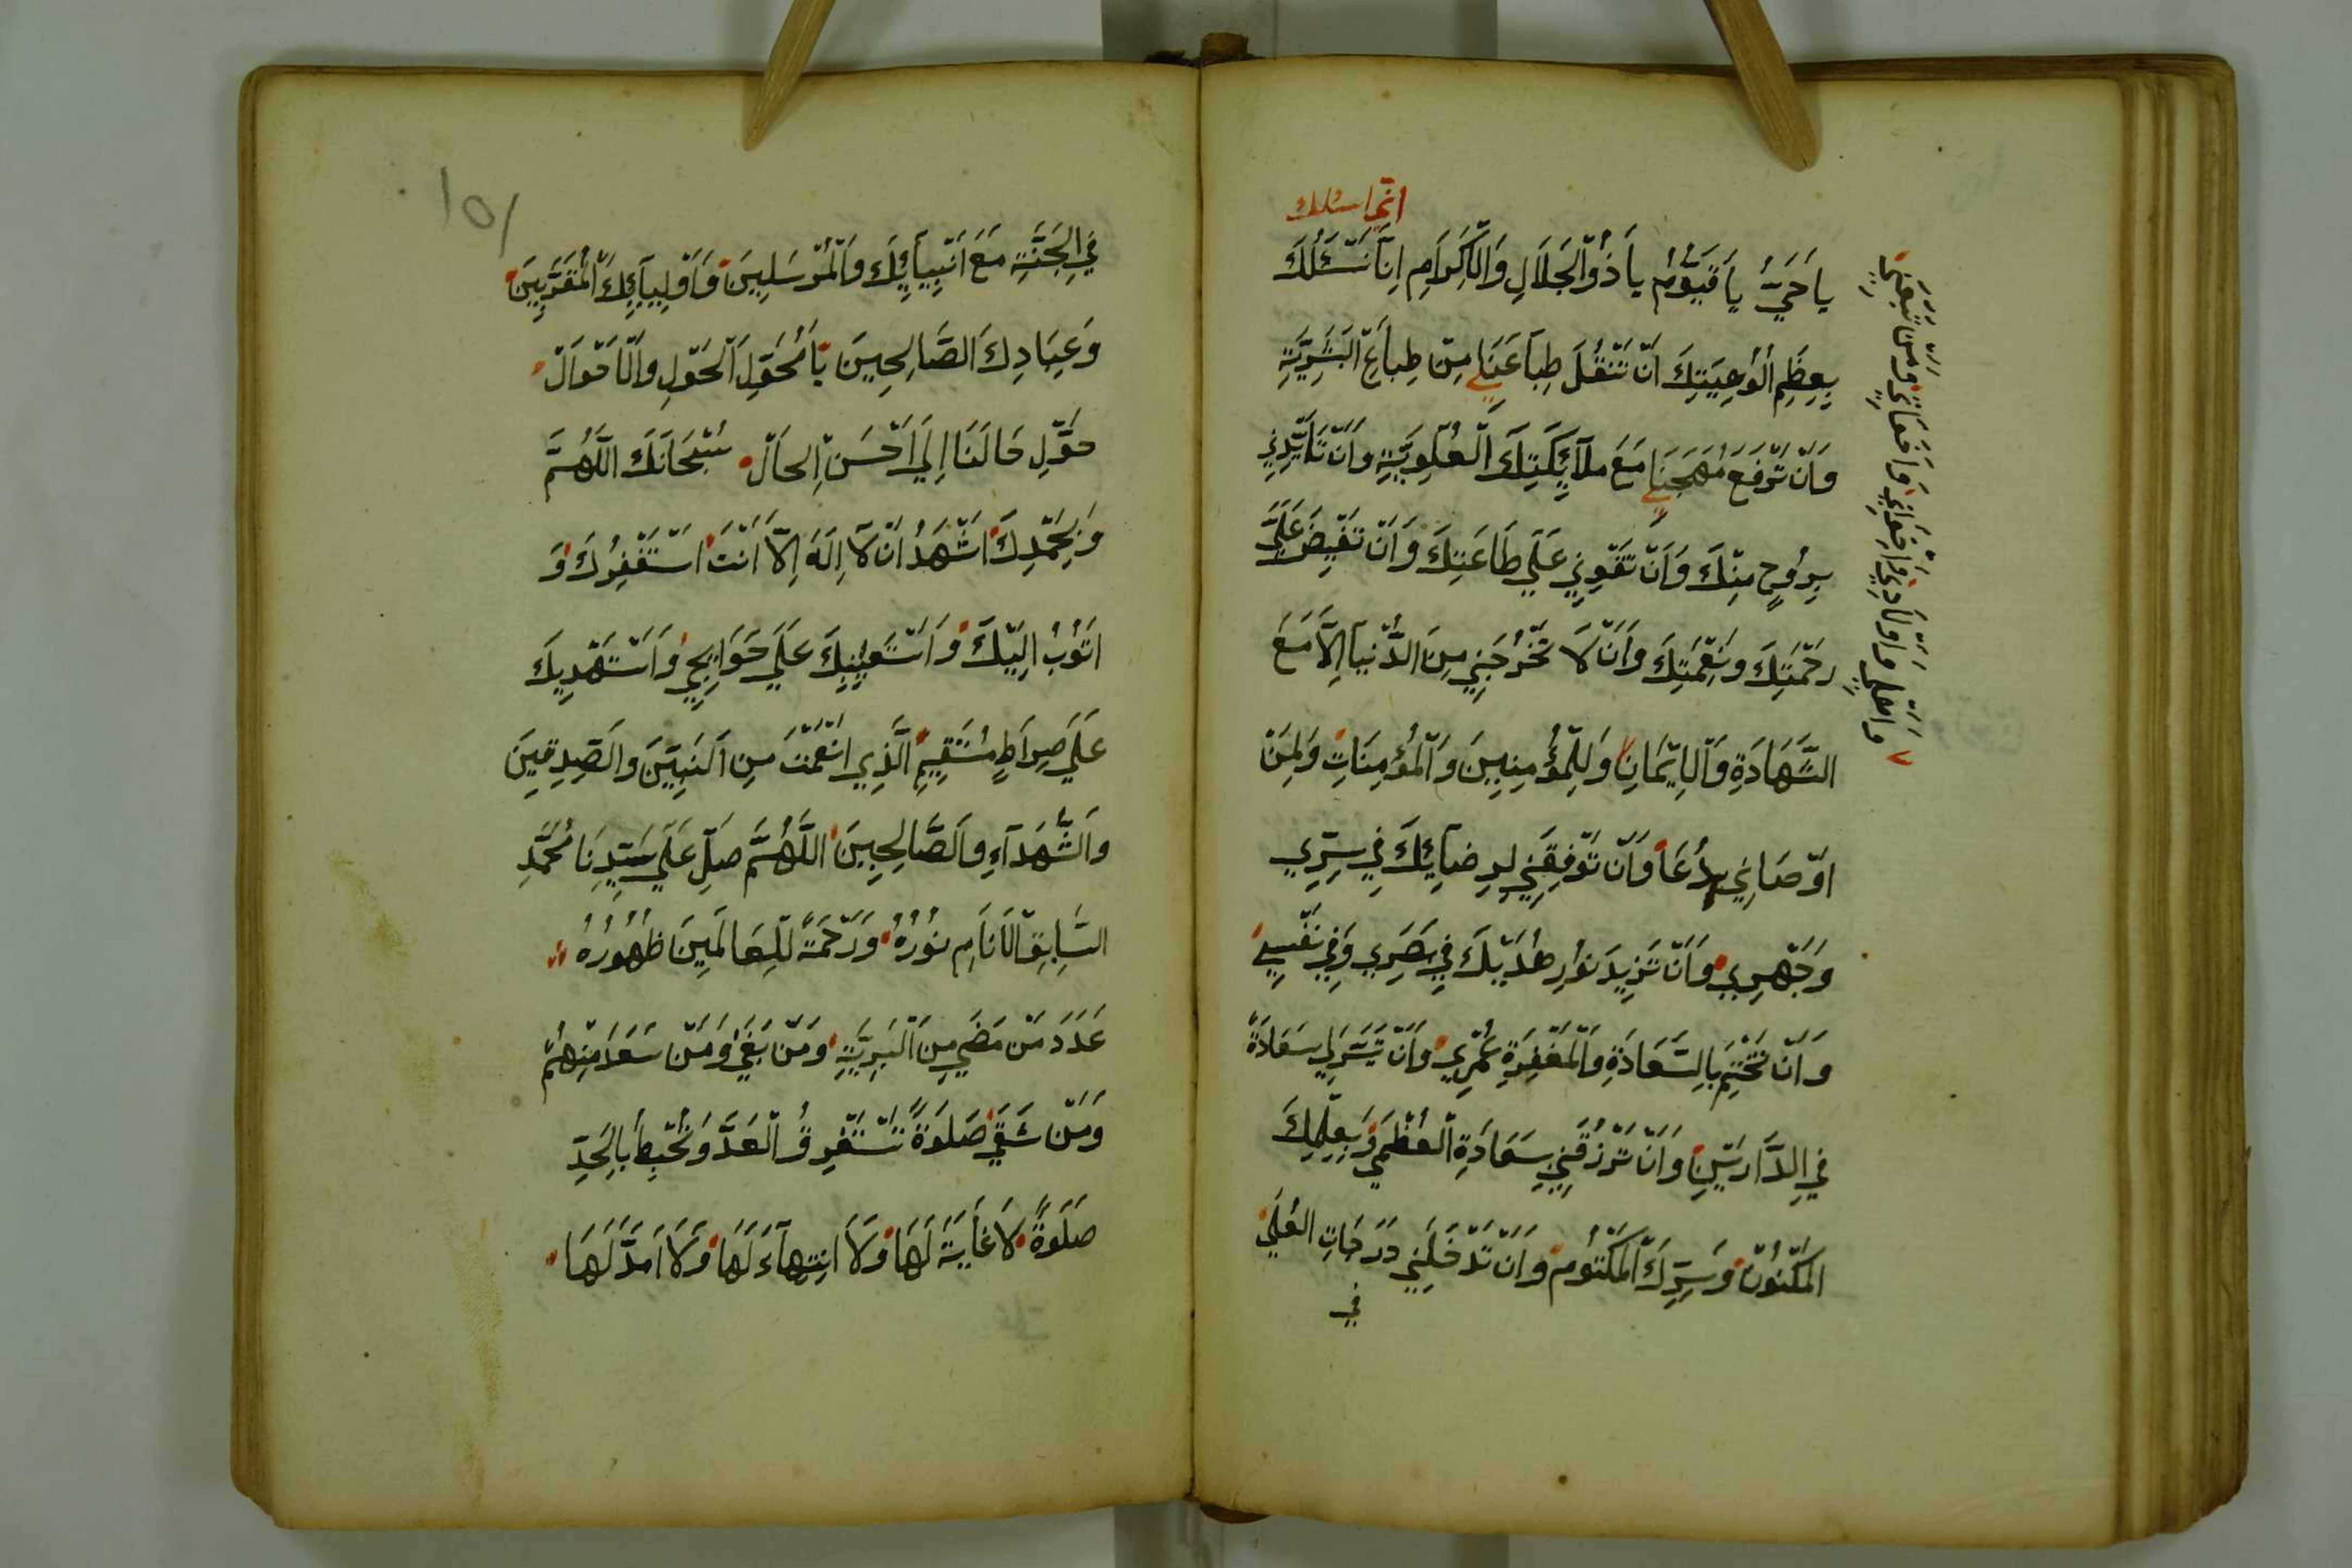 اني اسئلك
يَا حَيُّ يَا قَيُّوْمُ يَا ذُوْالْجَلَالِ وَالْاِكْرَامِ اِنَّا نَسْئَلُكَ
بِعِظَمِ اُلُوْهِيَتِكَ اَنْ تَنْقُلَ طِبَاعَنَا مِنْ طِبَاعِ الْبَشَرِيَّةِ
وَاَنْ تَرْفَعَ مُهَجَنَا مَعَ مَلآئِكَتِكَ الْعُلْوِيَّةِ وَاَنْ تَأَيَّدِنِي
بِرُوْحٍ مِنْكَ وَاَنْ تَقَوِّنِي عَلَي طَاعَتِكَ وَاَنْ تَفِيْضَ عَلَيَّ
رَحْمَتِكَ وَنِعْمَتِكَ وَاَنْ لَا تَخْرُجَنِي مِنَ الدُّنْيَا اِلَّا مَعَ
الشَّهَادَةِ وَالْاِيْمَانِ وَلِلْمُؤْمِنِيْنَ وَالْمُؤْمِنَاتِ وَلِمَنْ
اَوْصَانِي بِدُعَا وَاَنْ تَوْفِقَنِي لِرِضَائِكَ فِي سِرِّي
وَجَهْرِي وَاَنْ تَزِيْدَ نُوْارِ هُدَيْكَ فِي بَصَرِي وَفِي نَفْسِي
وَاَنْ تَخْتِمَ بِالسَّعَادَةِ وَالْمَغْفِرَةِ عُمْرِي وَاَنْ تَيَسَّرَ لِي سَعَادَةً
فِي الدَّارَيْنِ وَاَنْ تَرْزُقَنِي سَعَادَةِ الْعُظْمَي وَبِعِلْمِكَ
الْمَكْنُوْنْ وَسِرِّكَ الْمَكْتُومْ وَاَنْ تَدْخُلَنِي دَرَجَاتِ الْعُلَي
في
وَاهْلِي وَاَوْلَادِي وَاِخْوَانِي وَرُفَقَائِي وَمَنْ تَبِعَنِي
١٥١
فِي الْجَنَّةِ مَعَ اَنْبِيَائِكَ وَالْمُرْسَلِيْنَ وَاَوْلِيَائِكَ الْمُقَرَّبِيْنَ
وَعِبَادِكَ الصَّالِحِيْنَ يَا مُحَوِّلَ الْحَوْلِ وَالْاَحْوَالْ
حَوِّلْ حَالَنَا اِلَي اَحْسَنِ الْحَالْ سُبْحَانَكَ اللَّهُمَّ
وَبِحَمْدِكَ اَشْهَدُ اَنْ لَا اِلَهَ اِلَّا اَنْتَ اَسْتَغْفِرُكَ وَ
اَتُوْبُ اِلَيْكَ وَاَسْتَعِيْنِكَ عَلَي حَوَايِجِي وَاَسْتَهْدِيكَ
عَلَي صِرَاطٍ مُسْتَقِيمٍ الَّذِي اَنْعَمْتَ مِنِ النَّبِيِّنَ وَالصِّدِقِينَ
وَالشُّهَدَآءِ وَالصَّالِحِيْنَ اَللَّهُمَّ صَلِّ عَلَي سَيِّدِنَا مُحَمَّدٍ
السَّابِقِ الْاَنَامِ نُوْرُهُ وَرَحْمَةً لِلْعَالَمِينَ ظُهُورُهُ
عَدَدَ مَنْ مَضَي مِنَ الْبَرِيَّةِ وَمَنْ بَقَي وَمَنْ سَعَدَ مِنْهُمْ
وَمَنْ شَقَي صَلَوةً تَسْتَغْرِقُ الْعَدَّ وَتُحْيِطُ بِالْحَدِّ
صَلَوةً لَا غَايَةَ لَهَا وَلَا اِنْتِهَآءَ لَهَا وَلَا اَمَدَّ لَهَا